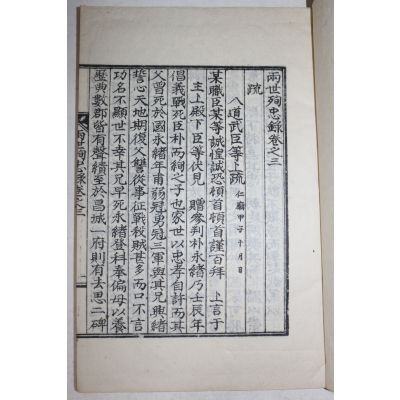 兩世殉忠錄卷之三
疏
八道武臣等上疏 仁廟甲子十月日
某職臣某等誠惶誠恐頓首頓首謹百拜 上言于
主上殿下臣等伏見 贈參判朴永緖乃壬辰年
倡義戰死臣朴而絢之子也家世以忠孝自許而其
父曾死於國永緖年甫弱冠勇冠三軍與其兄興緖
誓心天地期復父讐從事征戰殺賊甚多而口不言
功名不顯世不幸其兄早死永緖登科奉偏母以養
歷典數郡皆有聲績至於昌城一府則有去思二碑
兩世殉忠錄卷之三